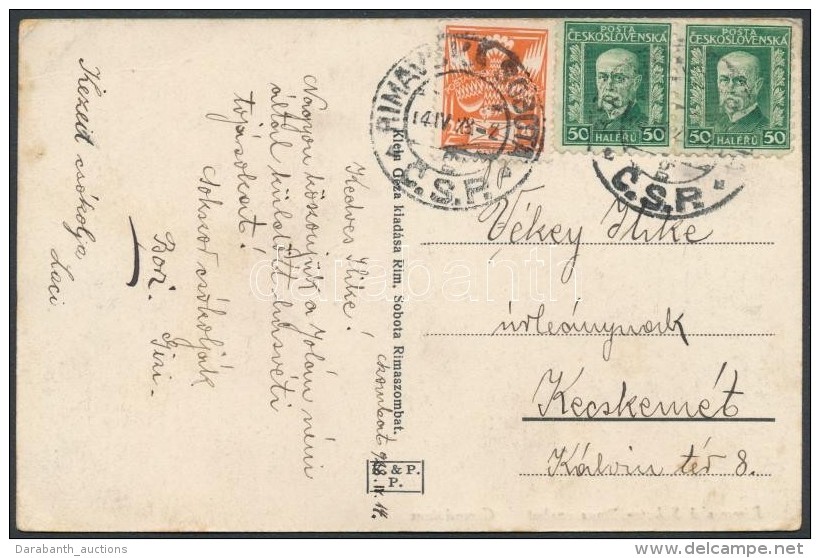 POŠTA
ČESKOSLOVENSKÁ
50 HALÉŘŮ 50
POŠTA
ČESKOSLOVENSKÁ
50 HALÉŘŮ 50
RIMAVSKÁ SOBOTA
14.IV.28
Č.S.P.
Č.S.P.
Vékey Ilike
úrleánynak
Kecskemét
Kálvin tér 8.
Kedves Ilike!
Nagyon köszönjük a Jolán néni
által küldött húsvéti
tojásokat!
Sokszor csókolják
Bori. Gizi.
Kezeit csókolja
Laci
szombat 928.IV.14.
Klein Géza kiadása Rim. Sobota Rimaszombat.
& P.
P.
darabanth
Darabanth_auctions
delcampe.net